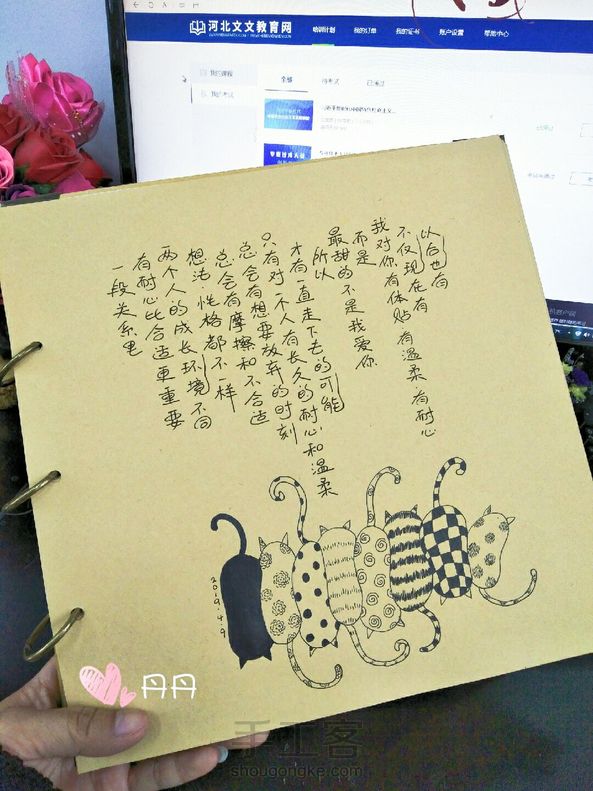 河北文文教育网
培训计划 我的订单 我的证书 账户设置 帮助中心
我的课程
我的考试
全部 待考试 已通过
一段关系里
有耐心比合适更重要
两个人的成长环境不同
想法.性格都不一样
总会有摩擦和不合适
总会有想要放弃的时刻
只有对一个人有长久的耐心和温柔
才有一直走下去的可能
所以
最甜的不是我爱你
而是
我对你有体贴 有温柔 有耐心
不仅现在有
以后也有
2019.4.9
丹丹
手工客
shougongke.com